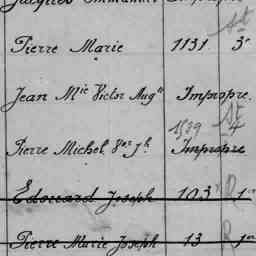 Pierre Marie 1131 3ᵉ
Jean Mⁱᵉ Victor Augᵗᵉ Impropre.
1539 4
Pierre Michel Vᵒʳ Jʰ Impropre
Edouard Joseph 103
Pierre Marie Joseph 13 1ᵉʳ